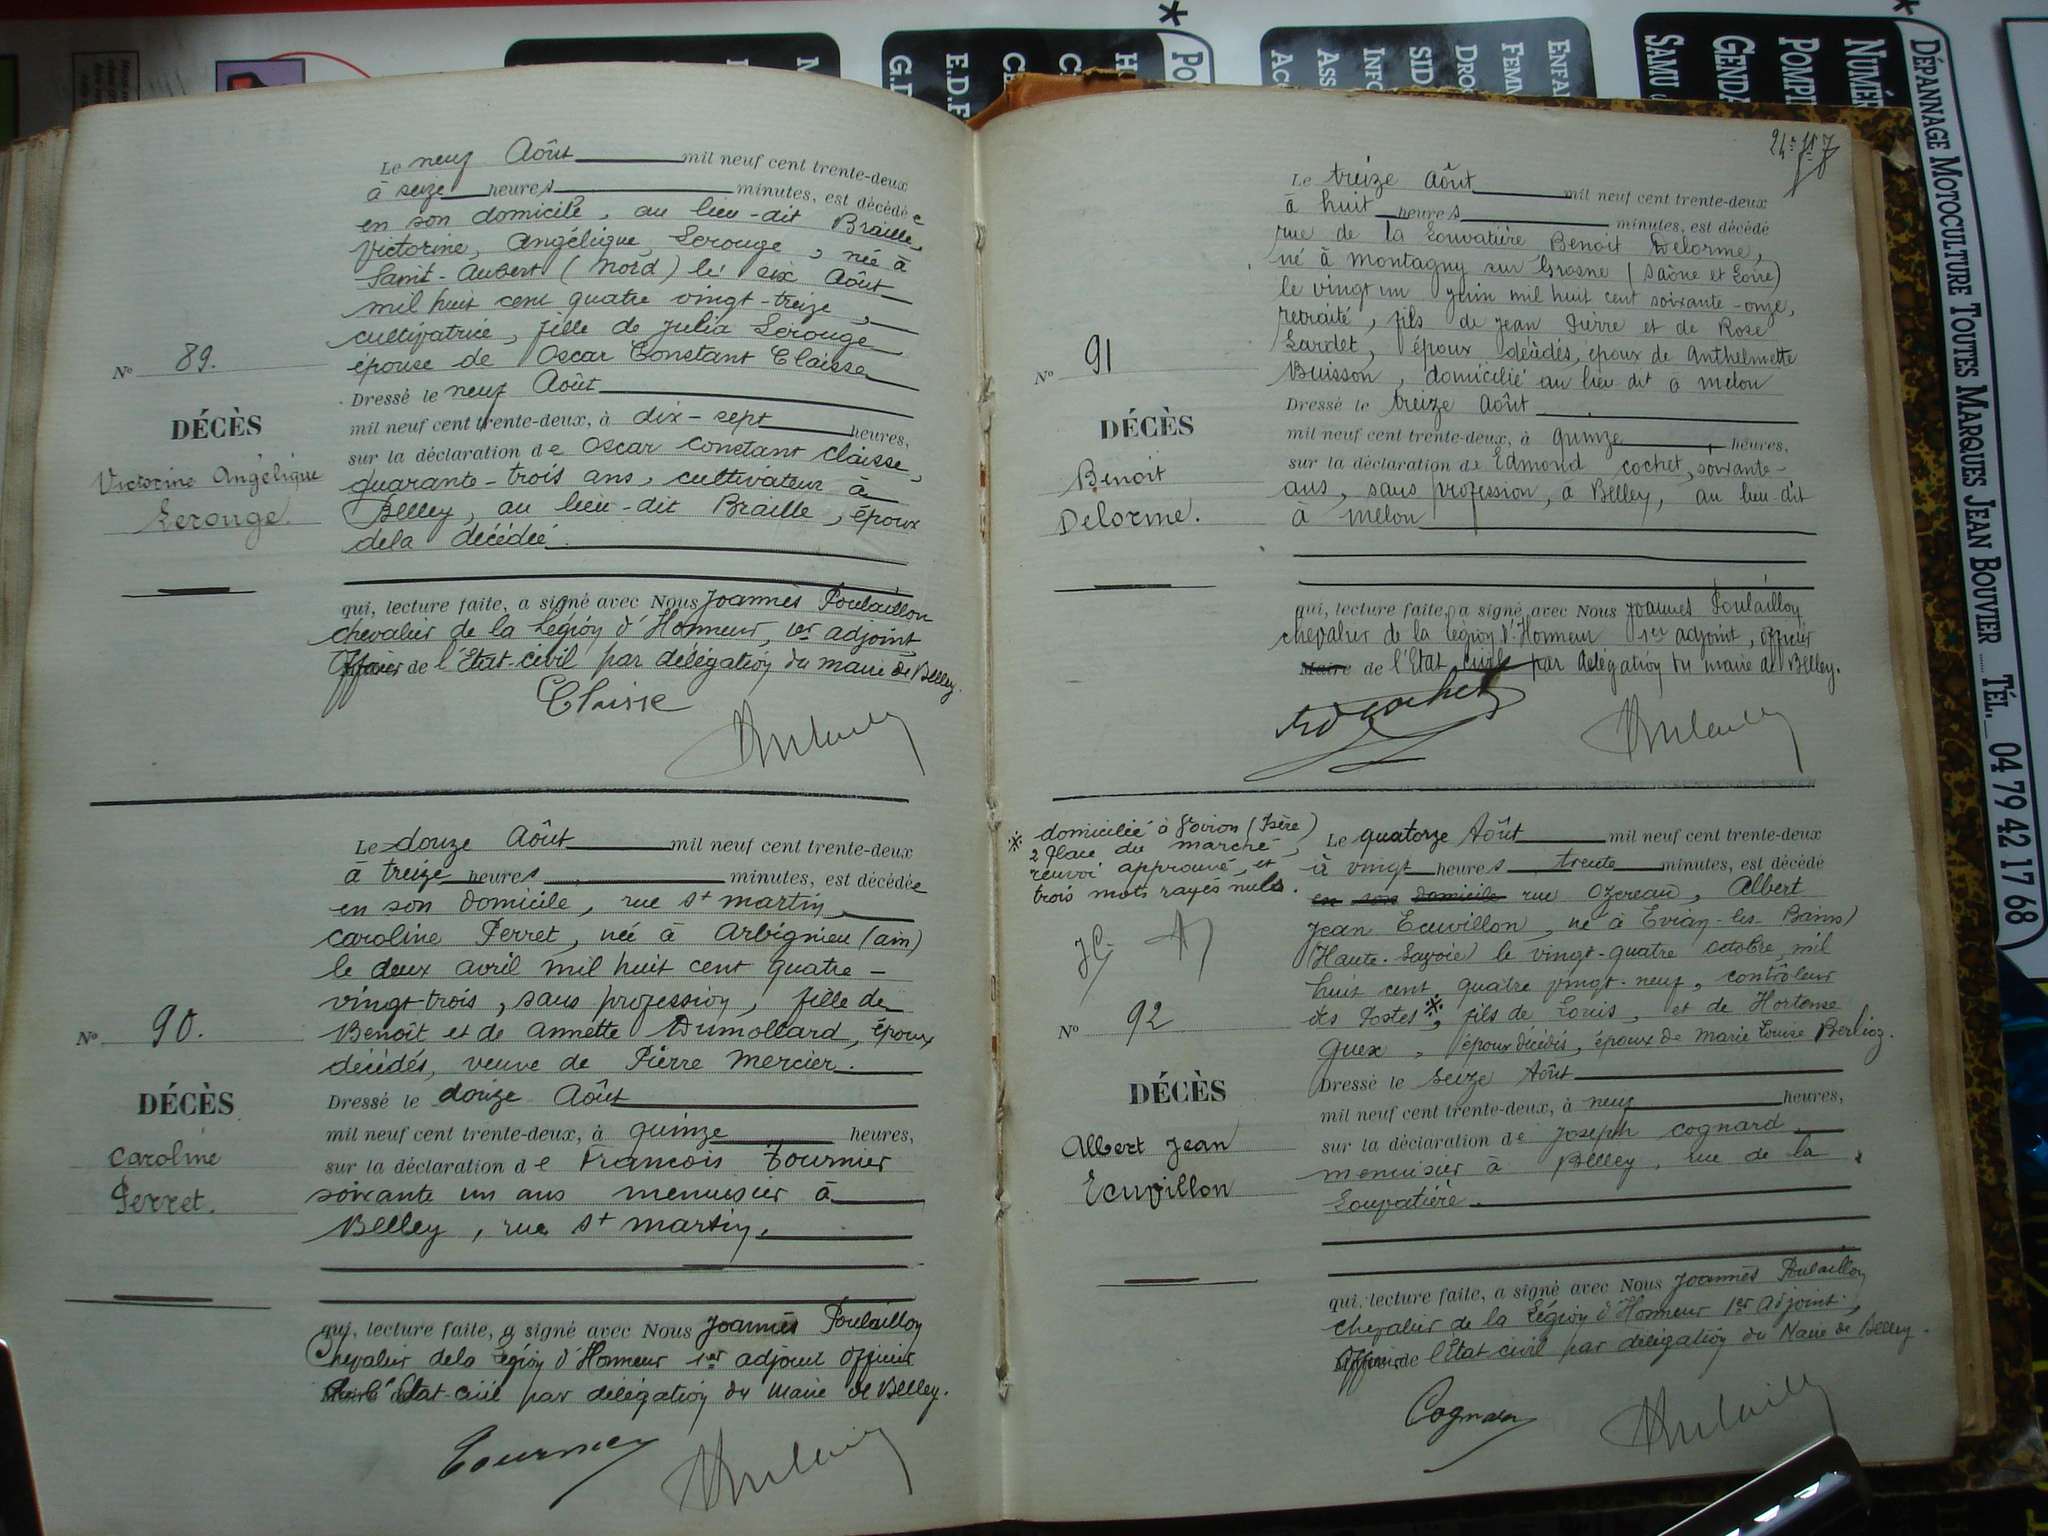 N° 89.
DÉCÈS
Victorine Angélique
Lerouge.
Le neuf Août mil neuf cent trente-deux
à seize heures minutes, est décédée
en son domicile, au lieu-dit Braille,
Victorine, Angélique, Lerouge, née à
Saint-Aubert (Nord) le six Août
mil huit cent quatre vingt-treize,
cultivatrice, fille de Julia Lerouge
épouse de Oscar Constant Claisse
Dressé le neuf Août
mil neuf cent trente-deux, à dix-sept heures,
sur la déclaration de Oscar Constant Claisse,
quarante-trois ans, cultivateur à
Belley, au lieu-dit Braille, époux
de la décédée.
qui, lecture faite, a signé avec Nous Joannès Poulaillon
chevalier de la Légion d'Honneur, 1er adjoint,
Officier de l'Etat-civil par délégation du maire de Belley.
Claisse
N° 90.
DÉCÈS
Caroline
Perret.
Le douze Août mil neuf cent trente-deux
à treize heures minutes, est décédée
en son domicile, rue St martin
Caroline Perret, née à Arbignieu (ain)
le deux avril mil huit cent quatre-
vingt-trois, sans profession, fille de
Benoît et de Annette Dumollard, époux
décédés, veuve de Pierre Mercier.
Dressé le douze Août
mil neuf cent trente-deux, à quinze heures,
sur la déclaration de Francois Tournier
soixante un ans menuisier à
Belley, rue St martin.
qui, lecture faite, a signé avec Nous Joannès Poulaillon
Chevalier de la Légion d'Honneur 1er adjoint officier
Etat-civil par délégation du Maire de Belley.
Tournier
N° 91
DÉCÈS
Benoit
Delorme.
Le treize Août mil neuf cent trente-deux
à huit heures minutes, est décédé
rue de la Louvatière Benoit Delorme,
né à Montagny sur Grosne (Saône et Loire)
le vingt un juin mil huit cent soixante-onze,
retraité, fils de Jean Pierre et de Rose
Lardet, époux décédés, époux de Anthelmette
Buisson, domicilié au lieu dit à melon
Dressé le treize Août
mil neuf cent trente-deux, à quinze heures,
sur la déclaration de Edmond Cochet, soixante-
ans, sans profession, à Belley, au lieu-dit
à Melon
qui, lecture faite, a signé avec Nous Joannès Poulaillon
chevalier de la Légion d'Honneur 1er adjoint, officier
Maire de l'Etat civil par délégation du maire de Belley.
Ed Cochet
※ domicilié à Voiron (Isère)
2 Place du marché,
renvoi approuvé, et
trois mots rayés nuls.
N° 92
DÉCÈS
Albert Jean
Ecuvillon
Le quatorze Août mil neuf cent trente-deux
à vingt heures trente minutes, est décédé
en son domicile rue Ozereau, Albert
Jean Ecuvillon, né à Evian-les-Bains
(Haute-Savoie) le vingt-quatre octobre, mil
huit cent quatre vingt-neuf, contrôleur
des Postes ※, fils de Louis, et de Hortense
Guex, époux décédés, époux de Marie Louise Berlioz.
Dressé le seize Août
mil neuf cent trente-deux, à neuf heures,
sur la déclaration de Joseph Cognard
menuisier à Belley, rue de la
Louvatière.
qui, lecture faite, a signé avec Nous Joannès Poulaillon
chevalier de la Légion d'Honneur 1er Adjoint,
Officier de l'Etat civil par délégation du Maire de Belley.
Cognard
DÉPANNAGE MOTOCULTURE TOUTES MARQUES JEAN BOUVIER TÉL. 04 79 42 17 68
SAMU
GENDA
POMPI
NUMÉR
ENFA
FEMM
DROG
SID
INFO
ASS
AC
PO
E.D.F
G.D